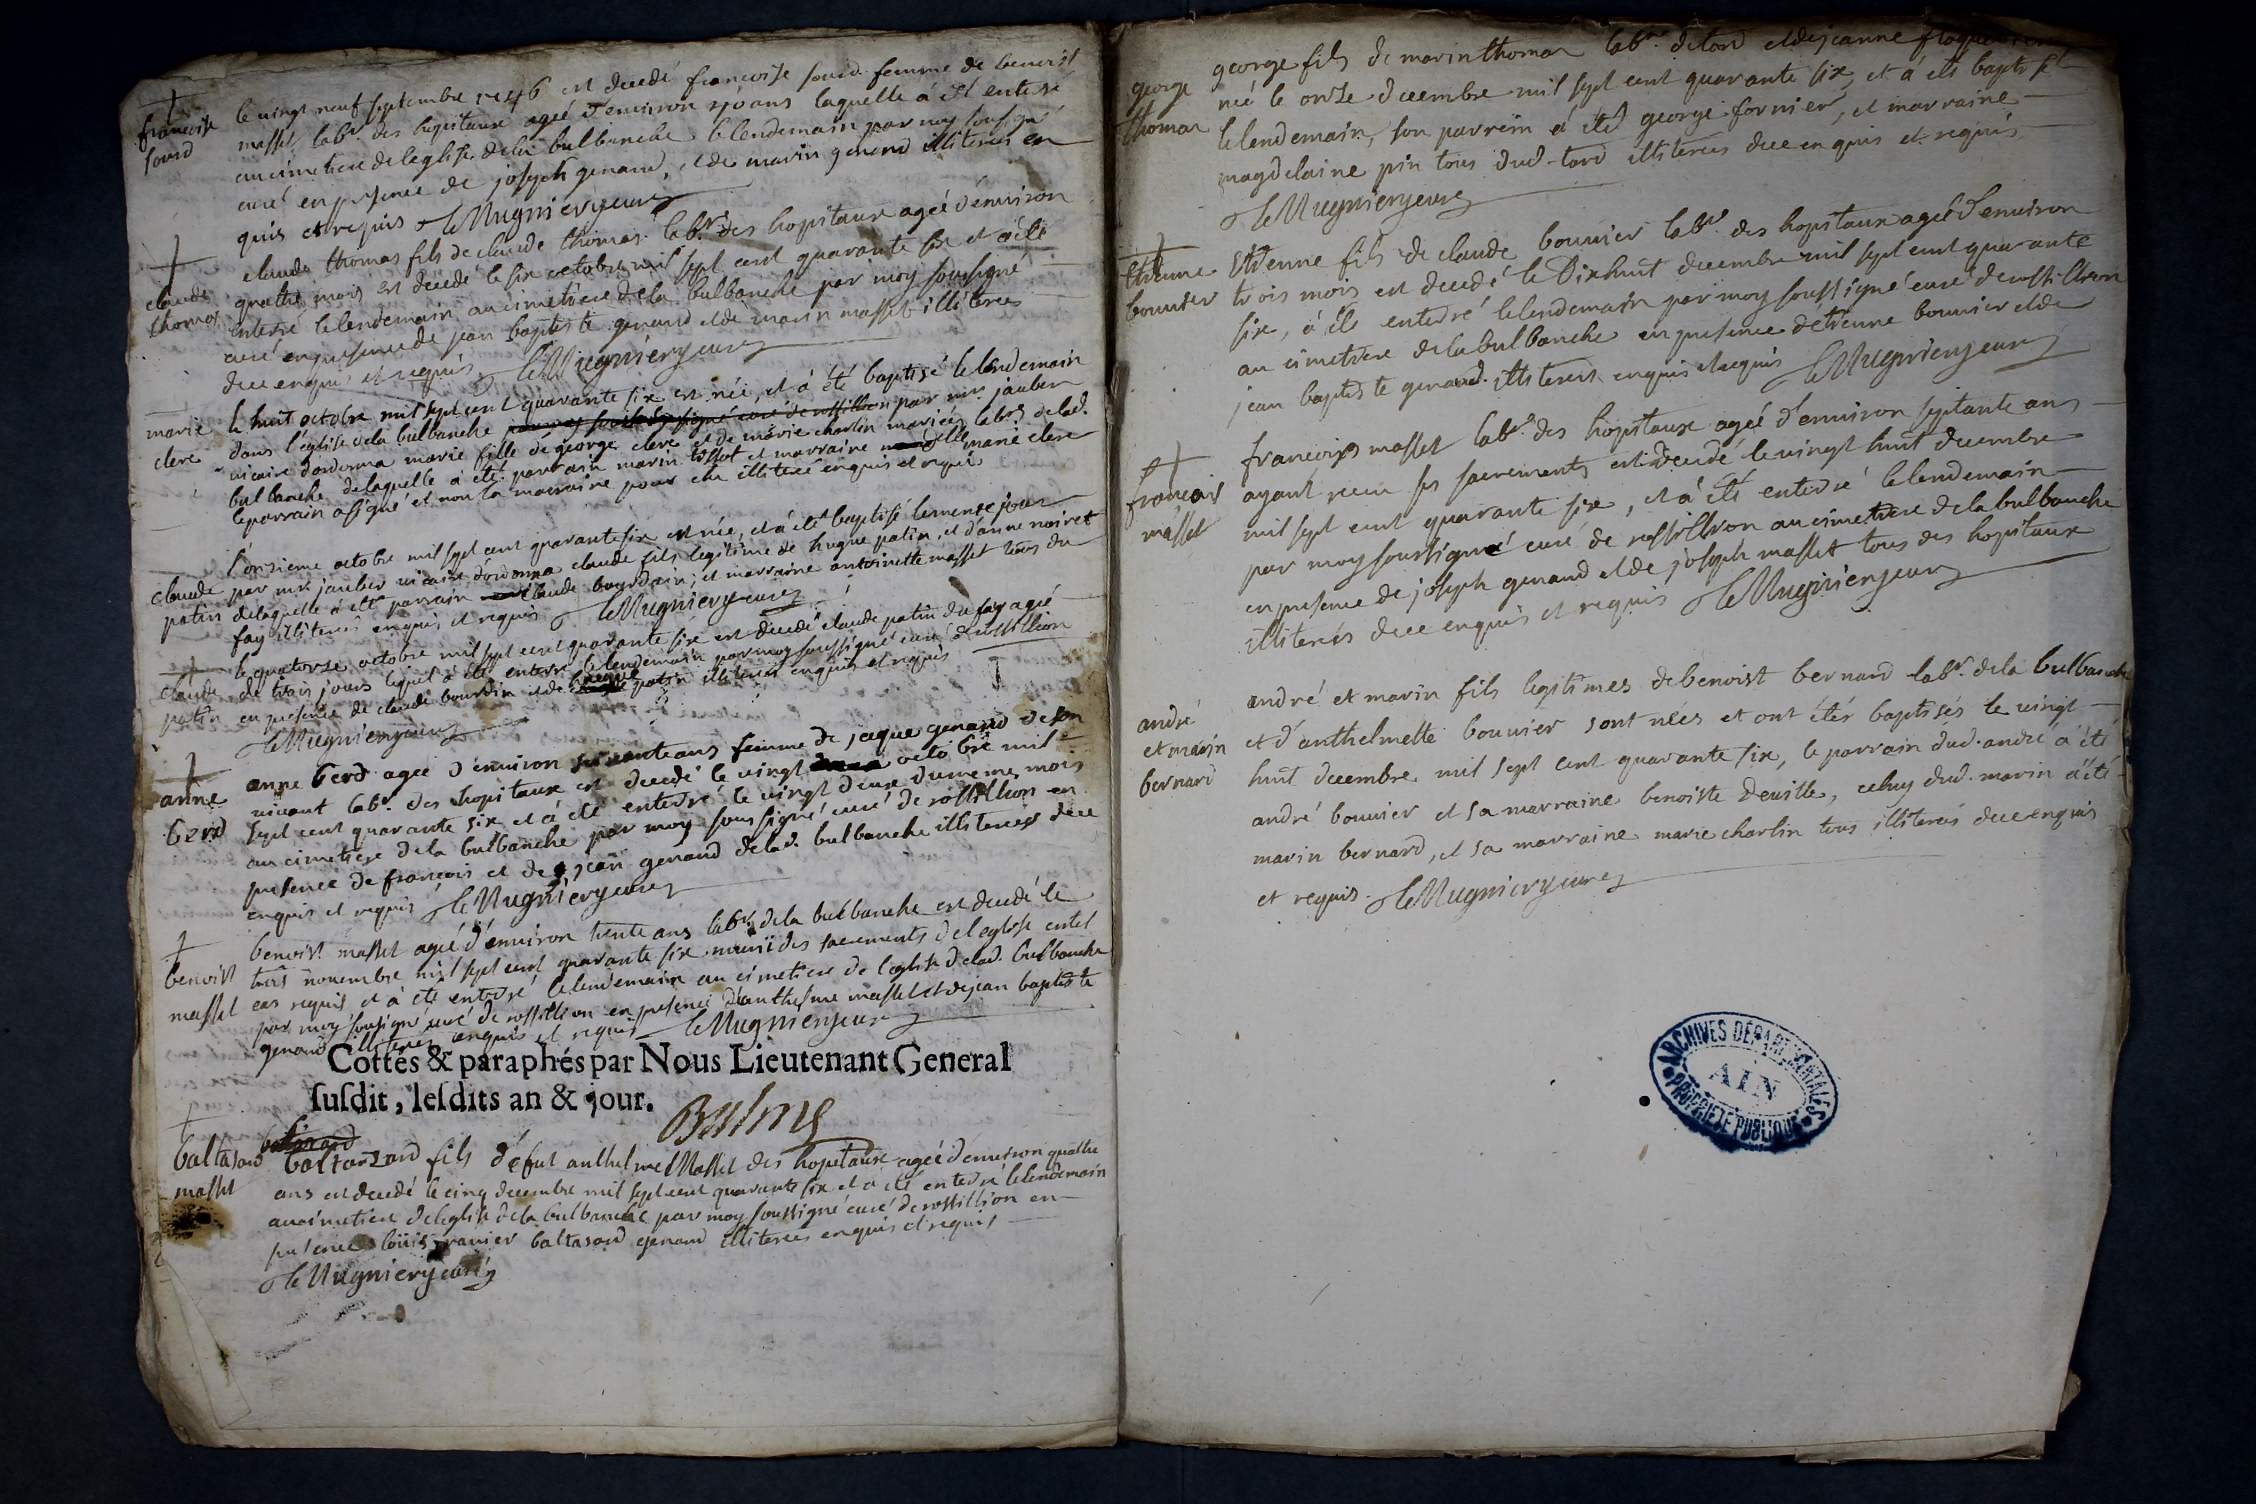 francoise
sourd
le vingt neuf septembre 1746 est decedé francoise sourd femme de benoist
masset labr. des hopitaux agée d'environ ans laquelle à été enterré
au cimetiere de leglise de la bulbanche le lendemain par moy sousigné
curé en presence de joseph genand, et de marin genand illiterés en
quis et requis le Mugnier curé
claude
thomas
claude thomas fils de claude thomas labr. des hopitaux ageé d'environ
quathe mois est decedé le six octobre mil sept cent quarante six et a été
enterré le lendemain au cimetiere de la bulbanche par moy sousigné
curé en presence de jean baptiste genand et de marin masset illiteres
de ce enquis et requis le Mugnier curé
marie
clere
le huit octobre mil sept cent quarante six est née, et à été baptisé le lendemain
dans l'eglise de la bulbanche par moy soussigné curé de rossillion par mr. jauber
vicaire dordonna marie fille de george clere et de marie charlin mariés labrs. de lad.
bulbanche de laquelle a été parrain marin tissot et marraine marie clere
le parrain a signé et non la marraine pour etre illiteré enquis et requis
claude
patin
l'onzieme octobre mil sept cent quarante six est née, et à été baptisé le meme jour
par mr. jauber vicaire dordonna claude fils legitime de hugue patin, et d'anne noiret
delaquelle à été parrain claude bourdin, et marraine antoinette masset tous du
fay illiteres enquis et requis le Mugnier curé
claude
patin
le quatorze octobre mil sept cent quarante six est decedé claude patin du fay agé
de trois jours lequel à été enterré le lendemain par moy soussigné curé de rossillion
en presence de claude bourdin et de hugue patin illiteres enquis et requis
le Mugnier curé
anne
berd
anne berd agée d'environ soixante ans femme de jaque genand de son
vivant labr. des hopitaux est decedé le vingt octobre mil
sept cent quarante six et à été enterré le vingt deux du meme mois
au cimetiere de la bulbanche par moy soussigné curé de rossillion en
presence de françois et de jean genand de lad. bulbanche illiteres de ce
enquis et requis le Mugnier curé
benoist
masset
benoist masset ageé d'environ trente ans labr. de la bulbanche est decedé le
trois novembre mil sept cent quarante six muni des sacrements de l eglise en tel
cas requis et à été enterré le lendemain au cimetiere de l'eglise de lad. bulbanche
par moy sousigné curé de rossillion en presence d'anthelme masset et de jean baptiste
genand illiteres enquis et requis le Mugnier curé
Cottés & paraphés par Nous Lieutenant General
susdit, lesdits an & jour.
Balme
baltasard
masset
baltasard fils de fut anthelme Masset des hopitaux ageé d'environ quathe
ans est decedé le cinq decembre mil sept cent quarante six et a été enterré le lendemain
au cimetiere de leglise de la bulbanche par moy soussigné curé de rossillion en
presence louis ravier baltasard genand illiteres enquis et requis
le Mugnier curé
george
thomas
george fils de marin thomas labr. de tard et de jeanne
neé le onze decembre mil sept cent quarante six, et à été baptisé
le lendemain, son parrein à été george fornier, et marraine
magdelaine pin tous dud. tard illiterées de ce enquis et requis
le Mugnier curé
etienne
bouvier
etienne fils de claude bouvier labr. des hopitaux ageé d'environ
trois mois est decedé le dixhuit decembre mil sept cent quarante
six, à été enterré le lendemain par moy soussigné curé de rossillion
au cimetiere de la bulbanche en presence detienne bouvier et de
jean baptiste genand illiterés enquis et requis le Mugnier curé
françois
masset
francois masset labr. des hopitaux ageé d'environ septante ans
ayant receu ses sacrements est decedé le vingt huit decembre
mil sept cent quarante six, et à été enterré le lendemain
par moy soussigné curé de rossillion au cimetiere de la bulbanche
en presence de joseph genand et de joseph masset tous des hopitaux
illiterés de ce enquis et requis le Mugnier curé
andré
et marin
bernard
andré et marin fils legitimes de benoist bernard labr. de la bulbanche
et d'anthelmette bouvier sont nées et ont étés baptisés le vingt
huit decembre mil sept cent quarante six, le parrain dud. andré a été
andré bouvier et sa marraine benoiste deville, celuy dud. marin a été
marin bernard, et sa marraine marie charlin tous illiterés de ce enquis
et requis. le Mugnier curé
ARCHIVES DÉPARTEMENTALES
AIN
PROPRIÉTÉ PUBLIQUE